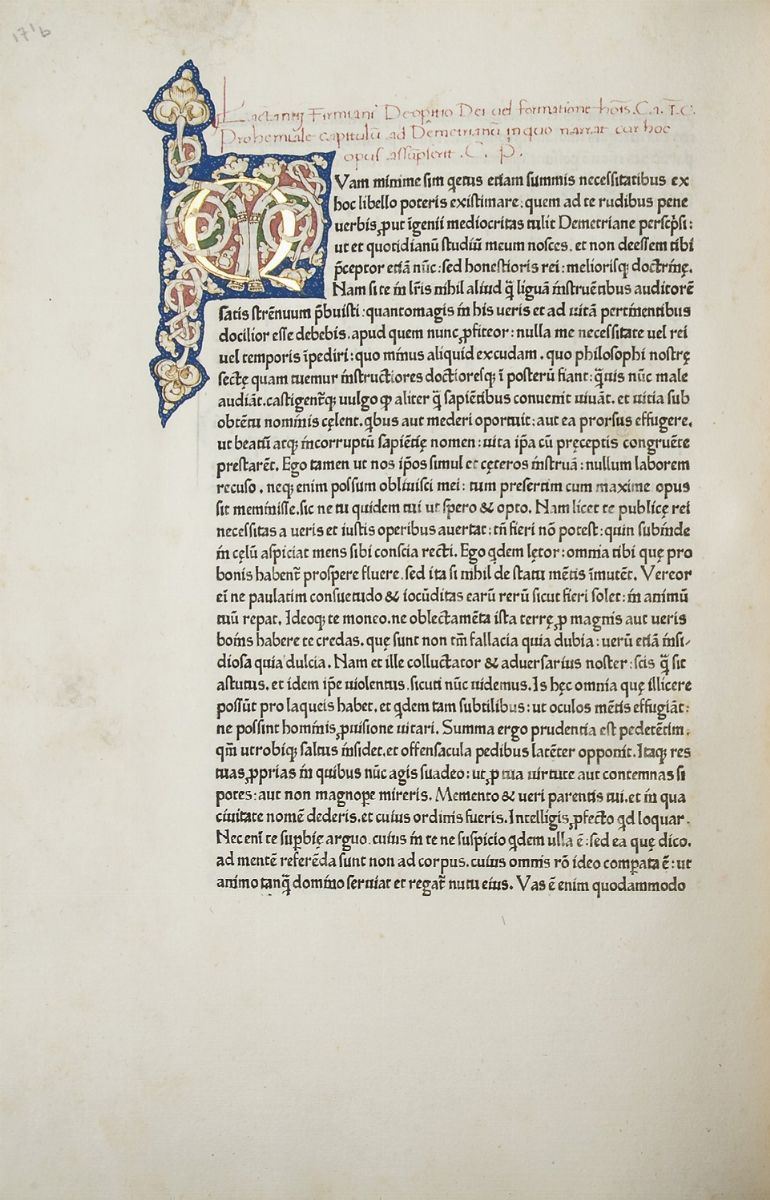 171b
Lactantij Firmiani De opitio Dei uel formatione hoīs. Ca. I. C.
Prohemiale capitulū ad Demetrianū in quo narrat cur hoc
opus assūpserit. C. P.
QVam minime sim q̄etus etiam summis necessitatibus ex
hoc libello poteris existimare: quem ad te rudibus pene
uerbis, ꝓut īgenii mediocritas tulit Demetriane perscp̄si:
ut et quotidianū studiū meum nosces. et non deessem tibi
p̄ceptor etiā nūc: sed honestioris rei: meliorisqꝫ doctrinę.
Nam si te in lr̄is nihil aliud q̄ liguā instruētibus auditorē
satis strēnuum p̄buisti: quantomagis in his ueris et ad uitā pertinentibus
docilior esse debebis. apud quem nunc ꝓfiteor: nulla me necessitate uel rei
uel temporis īpediri: quo minus aliquid excudam. quo philosophi nostrę
sectę quam tuemur instructiores doctioresqꝫ ī posterū fiant: q̄uis nūc male
audiāt. castigentqꝫ uulgo ꝙ aliter q̄ sapiētibus conuenit uiuāt. et uitia sub
obtētu nominis cęlent. qbus aut mederi oportuit: aut ea prorsus effugere.
ut beatū atqꝫ incorruptū sapiētię nomen: uita ip̄a cū pręceptis congruēte
prestarēt. Ego tamen ut nos ip̄os simul et cęteros instruā: nullum laborem
recuso. neqꝫ enim possum obliuisci mei: tum presertim cum maxime opus
sit meminisse. sic ne tu quidem tui ut spero & opto. Nam licet te publicę rei
necessitas a ueris et iustis operibus auertat: tn̄ fieri nō potest: quin subinde
in cęlū aspiciat mens sibi conscia recti. Ego qdem lętor: omnia tibi quę pro
bonis habent̄ prospere fluere. sed ita si nihil de statu mētis īmutēt. Vereor
ei̅ ne paulatim consuetudo & iocūditas earū rerū sicut fieri solet: in animū
tuū repat. Ideoqꝫ te moneo. ne oblectamēta ista terrę ꝓ magnis aut ueris
bonis habere te credas. quę sunt non tm̄ fallacia quia dubia: uerū etiā insi-
diosa quia dulcia. Nam et ille colluctator & aduersarius noster: scis q̄ sit
astutus. et idem ip̄e uiolentus. sicuti nūc uidemus. Is hęc omnia quę illicere
possūt pro laqueis habet. et qdem tam subtilibus: ut oculos mētis effugiāt:
ne possint hominis ꝓuisione uitari. Summa ergo prudentia est pedetētim.
qm̄ utrobiqꝫ saltus insidet. et offensacula pedibus latēter opponit. Itaqꝫ res
tuas ꝓprias in quibus nūc agis suadeo: ut ꝓ tua uirtute aut contemnas si
potes: aut non magnope̱ mireris. Memento & ueri parentis tui. et in qua
ciuitate nomē dederis. et cuius ordinis fueris. Intelligis ꝓfecto qd loquar.
Nec eni̅ te sup̱bię arguo. cuius in te ne suspicio qdem ulla ē: sed ea quę dico.
ad mentē referēda sunt non ad corpus. cuius omnis rō ideo comp̱ata ē: ut
animo tanq̄ domino seruiat et regat̄ nutu eius. Vas ē enim quodammodo